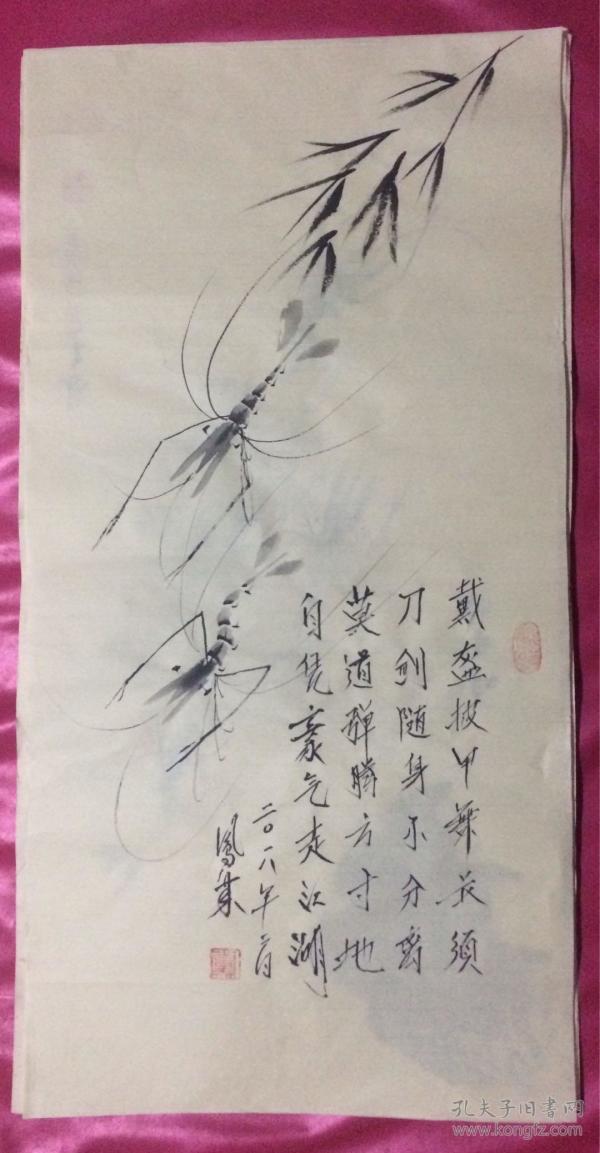 戴盔披甲舞长须
刀剑随身不分离
莫道弹腾方寸地
自凭豪气走江湖
二〇一八年二月
凤集
孔夫子旧书网
www.kongfz.com